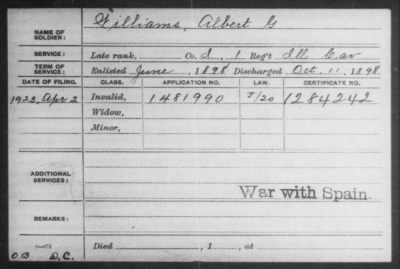 NAME OF SOLDIER: Williams, Albert G
SERVICE: Late rank, Co. I, 1 Reg't Ill Cav
TERM OF SERVICE: Enlisted June, 1898 Discharged Oct. 11, 1898
DATE OF FILING. CLASS. APPLICATION NO. LAW. CERTIFICATE NO.
1923, Apr 2 Invalid, 1481990 J/20 1284242
Widow,
Minor,
ADDITIONAL SERVICES:
War with Spain.
REMARKS:
Died , 1 , at
D.C.